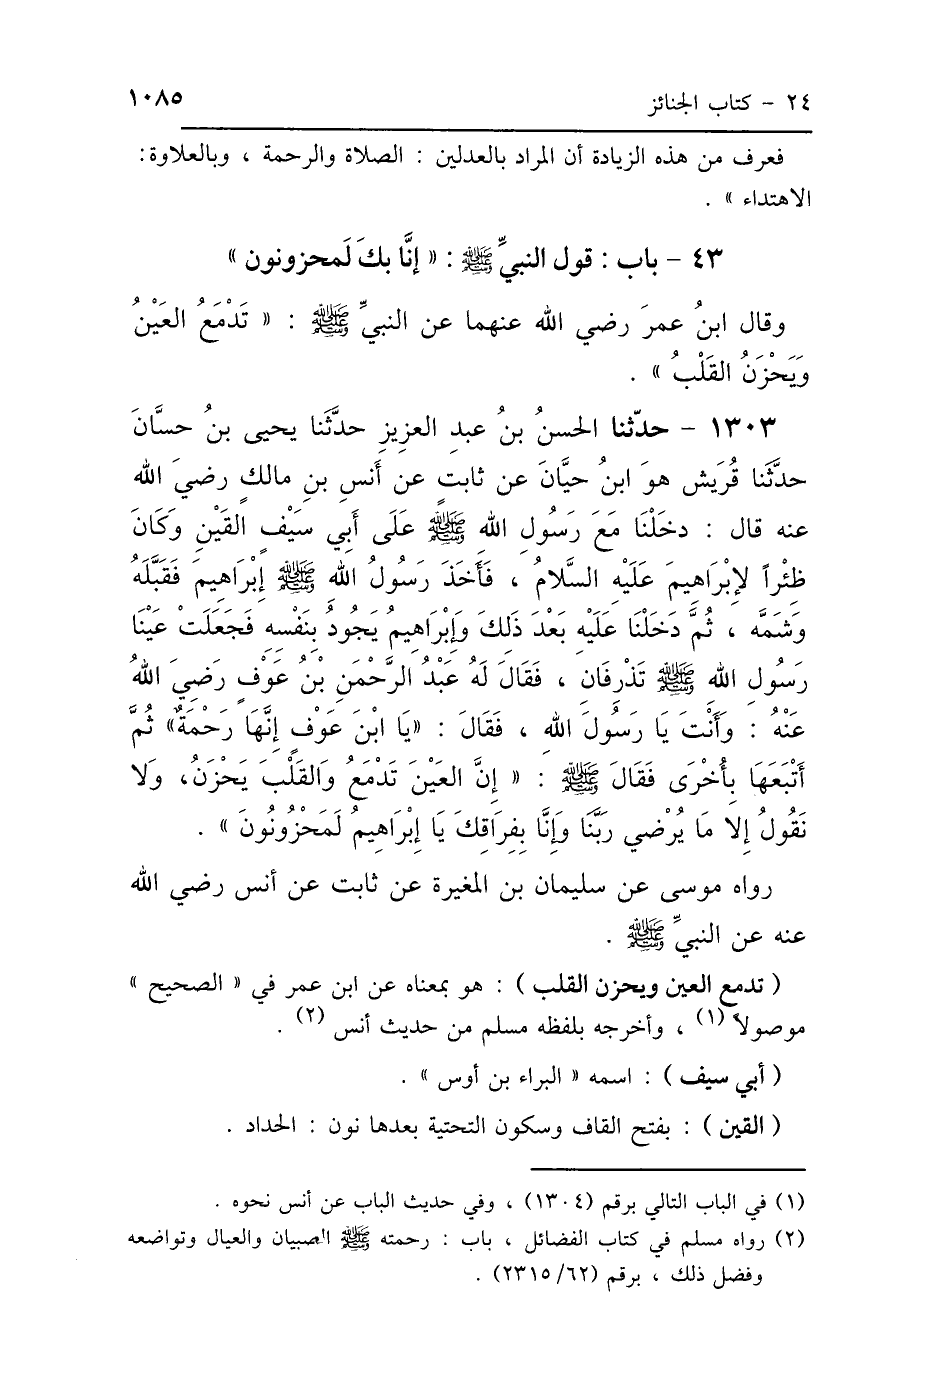 ٢٤ - كتاب الجنائز ١٠٨٥
فعرف من هذه الزيادة أن المراد بالعدلين : الصلاة والرحمة ، وبالعلاوة:
الاهتداء » .
٤٣ - باب : قول النبيِّ ﷺ : « إنَّا بكَ لَمحزونون »
وقال ابنُ عمرَ رضي الله عنهما عن النبيِّ ﷺ : « تَدْمَعُ العَيْنُ
وَيَحْزَنُ القَلْبُ » .
١٣٠٣ - حدّثنا الحسنُ بنُ عبدِ العزيزِ حدَّثَنا يحيى بنُ حسَّانَ
حدَّثَنا قُرَيش هوَ ابنُ حيَّانَ عن ثابتٍ عن أَنسِ بنِ مالكٍ رضيَ الله
عنه قال : دخَلْنَا مَعَ رَسُولِ اللهِ ﷺ عَلَى أَبِي سَيْفٍ القَيْنِ وَكَانَ
ظِئْراً لإبْرَاهِيمَ عَلَيْهِ السَّلامُ ، فَأَخَذَ رَسُولُ اللهِ ﷺ إبْرَاهِيمَ فَقَبَّلَهُ
وَشَمَّه ، ثُمَّ دَخَلْنَا عَلَيْهِ بَعْدَ ذَلِكَ وَإبْرَاهِيمُ يَجُودُ بِنَفْسِهِ فَجَعَلَتْ عَيْنَا
رَسُولِ اللهِ ﷺ تَذْرِفَانِ ، فَقَالَ لَهُ عَبْدُ الرَّحْمَنِ بْنُ عَوْفٍ رَضِيَ اللهُ
عَنْهُ : وَأَنْتَ يَا رَسُولَ اللهِ ، فَقَالَ : «يَا ابْنَ عَوْفٍ إنَّهَا رَحْمَةٌ» ثُمَّ
أَتْبَعَهَا بِأُخْرَى فَقَالَ ﷺ : « إنَّ العَيْنَ تَدْمَعُ وَالقَلْبَ يَحْزَنُ، وَلا
نَقُولُ إلا مَا يُرْضِي رَبَّنَا وَإنَّا بِفِرَاقِكَ يَا إبْرَاهِيمُ لَمَحْزُونُونَ » .
رواه موسى عن سليمان بن المغيرة عن ثابت عن أنس رضي الله
عنه عن النبيِّ ﷺ .
( تدمع العين ويحزن القلب ) : هو بمعناه عن ابن عمر في « الصحيح »
موصولاً (١) ، وأخرجه بلفظه مسلم من حديث أنس (٢) .
( أبي سيف ) : اسمه « البراء بن أوس » .
( القين ) : بفتح القاف وسكون التحتية بعدها نون : الحداد .
(١) في الباب التالي برقم (١٣٠٤) ، وفي حديث الباب عن أنس نحوه .
(٢) رواه مسلم في كتاب الفضائل ، باب : رحمته ﷺ الصبيان والعيال وتواضعه
وفضل ذلك ، برقم (٢٣١٥/٦٢) .